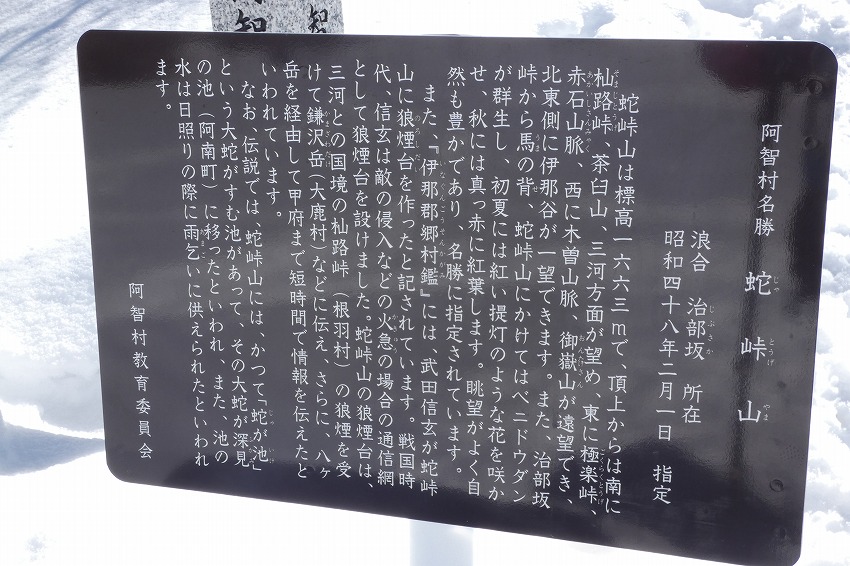 阿智
智
阿智村名勝 蛇峠山
浪合 治部坂 所在
昭和四十八年二月一日 指定
蛇峠山は標高一六六三mで、頂上からは南に
杣路峠、茶臼山、三河方面が望め、東に極楽峠、
赤石山脈、西に木曽山脈、御嶽山が遠望でき、
北東側に伊那谷が一望できます。また、治部坂
峠から馬の背、蛇峠山にかけてはベニドウダン
が群生し、初夏には紅い提灯のような花を咲か
せ、秋には真っ赤に紅葉します。眺望がよく自
然も豊かであり、名勝に指定されています。
また、『伊那郡郷村鑑』には、武田信玄が蛇峠
山に狼煙台を作ったと記されています。戦国時
代、信玄は敵の侵入などの火急の場合の通信網
として狼煙台を設けました。蛇峠山の狼煙台は、
三河との国境の杣路峠(根羽村)の狼煙を受
けて鎌沢岳(大鹿村)などに伝え、さらに、八ヶ
岳を経由して甲府まで短時間で情報を伝えたと
いわれています。
なお、伝説では、蛇峠山には、かつて「蛇が池」
という大蛇がすむ池があって、その大蛇が深見
の池(阿南町)に移ったといわれ、また、池の
水は日照りの際に雨乞いに供えられたといわれ
ます。
阿智村教育委員会